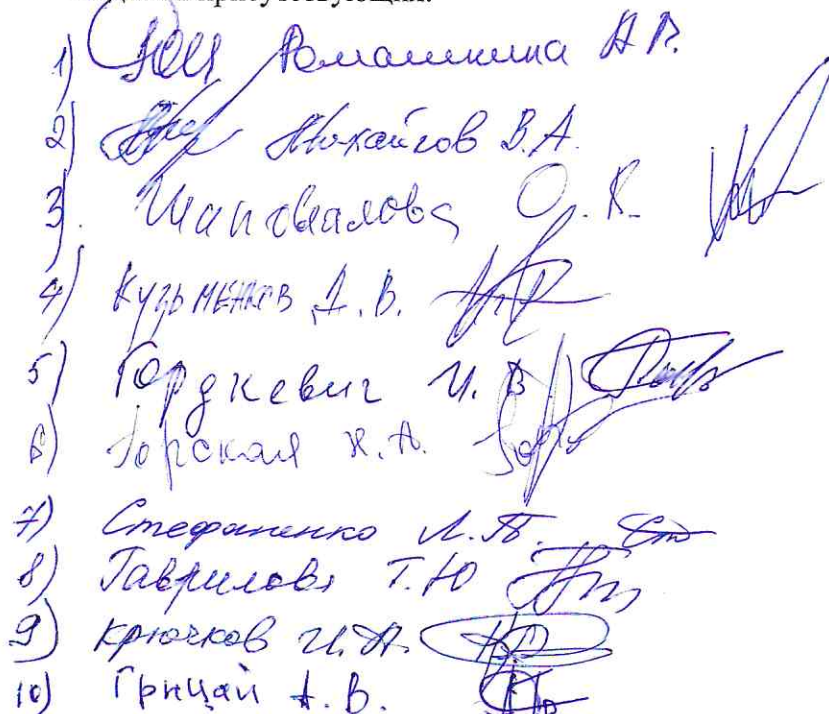 присутствующих:
1) Ромашкина А.В.
2) Михайлов В.А.
3) Шаповалова О.К.
4) Кузьменков А.В.
5) Гордкевич И.В
6) Горская Н.А.
7) Стефаненко Л.Б.
8) Гаврилова Т.Ю
9) Крючков И.А.
10) Грицай А.В.